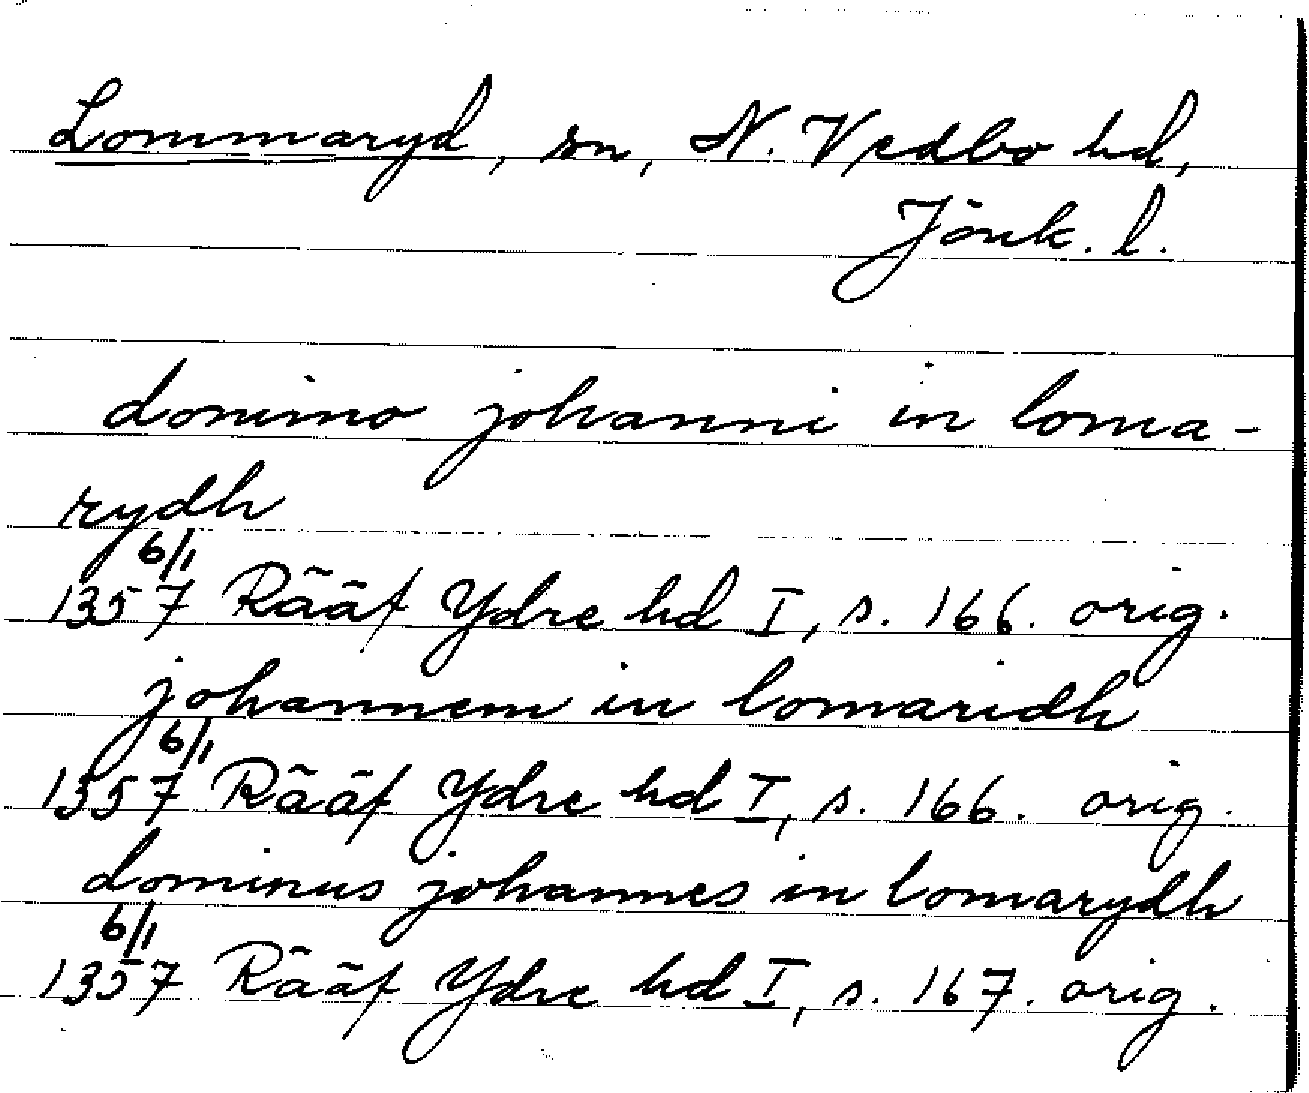 Lommaryd, sn, N. Vedbo hd,
Jönk. l.
domino johanni in loma-
rydh
6/1
1357 Rääf Ydre hd I, s. 166. orig.
johannem in lomaridh
6/1
1357 Rääf Ydre hd I, s. 166. orig.
dominus johannes in lomarydh
6/1
1357 Rääf Ydre hd I, s. 167. orig.